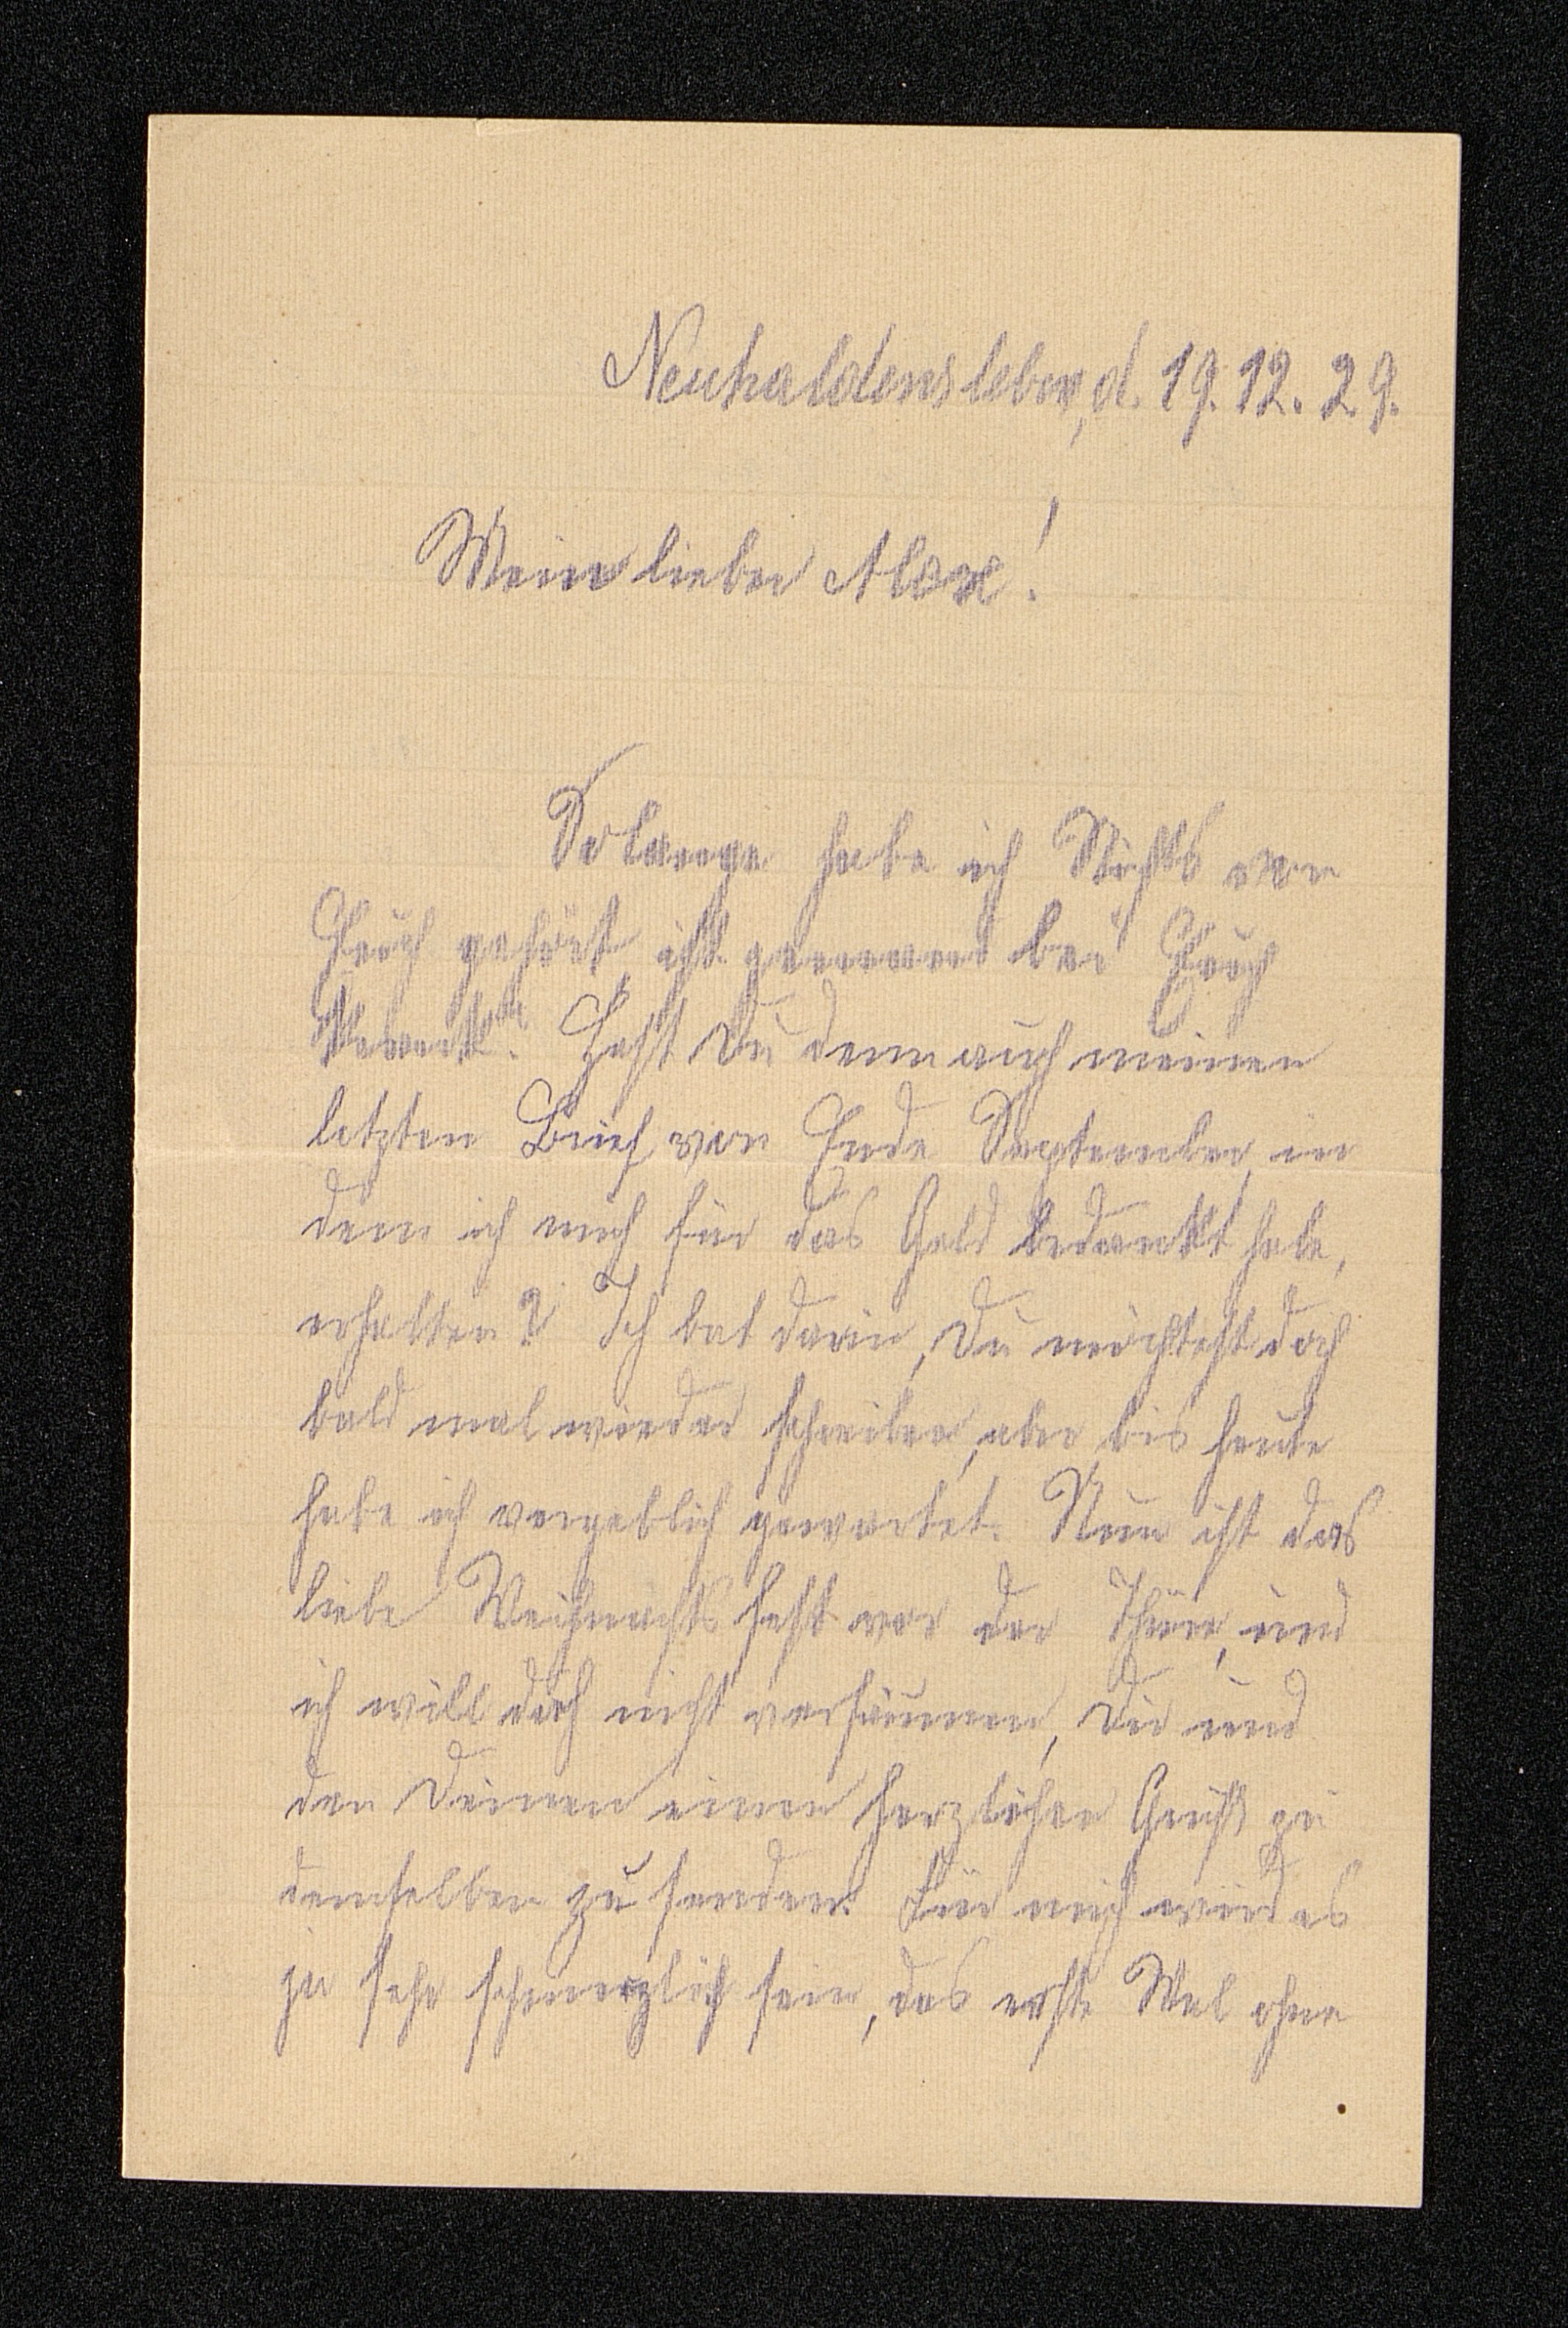 Neuhaldensleben, d. 19. 12. 29.
Mein lieber Max!
So lange habe ich Nichts von
Euch gehört, ist jemand bei Euch
krank? Hast Du denn auch meinen
letzten Brief von Ende September, in
dem ich mich für das Geld bedankt habe,
erhalten? Ich bat darin, Du möchtest doch
bald mal wieder schreiben, aber bis heute
habe ich vergeblich gewartet. Nun ist das
liebe Weihnachtsfest vor der Thüre, und
ich will doch nicht versäumen, Dir und
den Deinen einen herzlichen Gruß zu
demselben zu senden. Für mich wird es
ja sehr schmerzlich sein, das erste Mal ohne